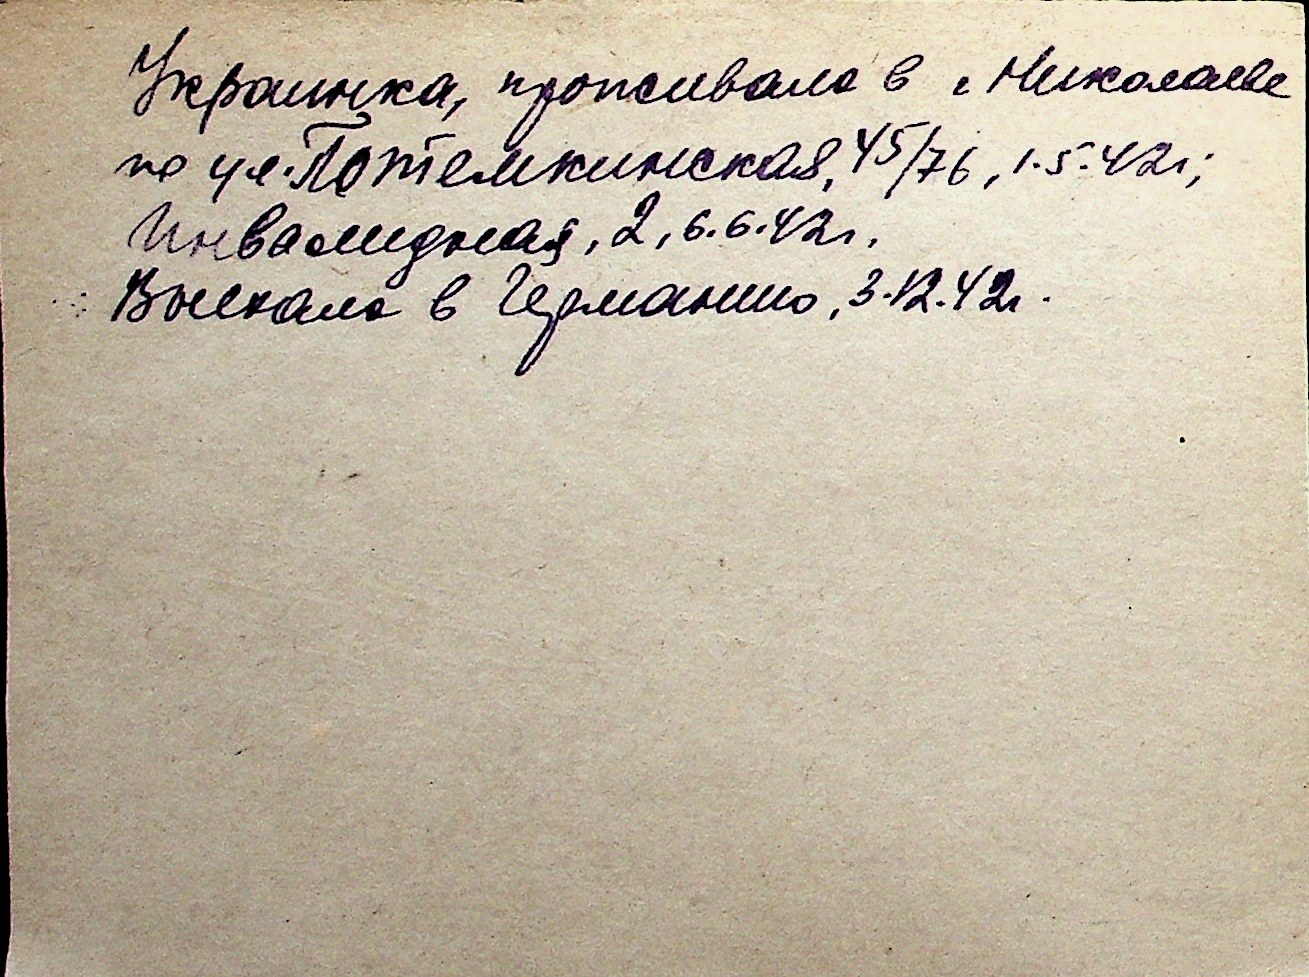 Украинка, проживала в г. Николаеве
по ул. Потемкинская, 45/76, 1.5.42г;
Инвалидная, 2, 6.6.42г.
Выехала в Германию, 3.12.42г.